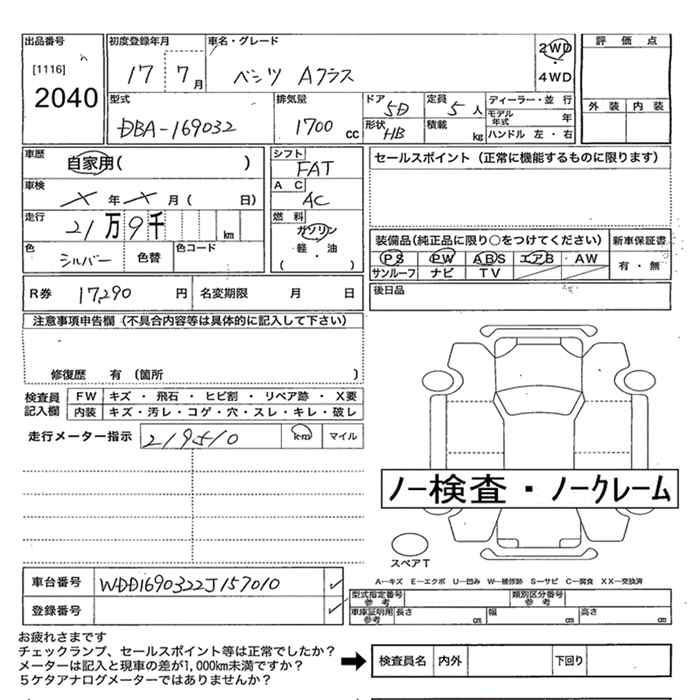 出品番号 初度登録年月 車名・グレード 2WD 評価点
[1116] 17 7月 ベンツ Aクラス ・
2040 4WD
型式 排気量 ドア 5D 定員 5人 ディーラー・並行 外装 内装
DBA-169032 1700cc 形状 HB 積載 kg モデル年式 年
ハンドル 左・右
車歴 自家用( ) シフト FAT セールスポイント(正常に機能するものに限ります)
車検 X年X月( 日) AC AC
走行 21万9千 km 燃料 ガソリン 装備品(純正品に限り○をつけてください) 新車保証書
色 シルバー 色替 色コード 軽・油 PS PW ABS エアB AW 有・無
( ) サンルーフ ナビ TV
R券 17,290円 名変期限 月 日 後日品
注意事項申告欄(不具合内容等は具体的に記入して下さい)
修復歴 有(箇所 )
検査員 FW キズ・飛石・ヒビ割・リペア跡・X要
記入欄 内装 キズ・汚レ・コゲ・穴・スレ・キレ・破レ
走行メーター指示 219510 km マイル
ノー検査・ノークレーム
スペアT
A―キズ E―エクボ U―凹み W―補修跡 S―サビ C―腐食 XX―交換済
車台番号 WDD1690322J157010 ✓ 型式指定番号 参考 類別区分番号 参考
登録番号 ✓ 車庫証明用 参考 長さ cm 幅 cm 高さ cm
お疲れさまです
チェックランプ、セールスポイント等は正常でしたか?
メーターは記入と現車の差が1,000km未満ですか? ➡ 検査員名 内外 下回り
5ケタアナログメーターではありませんか?